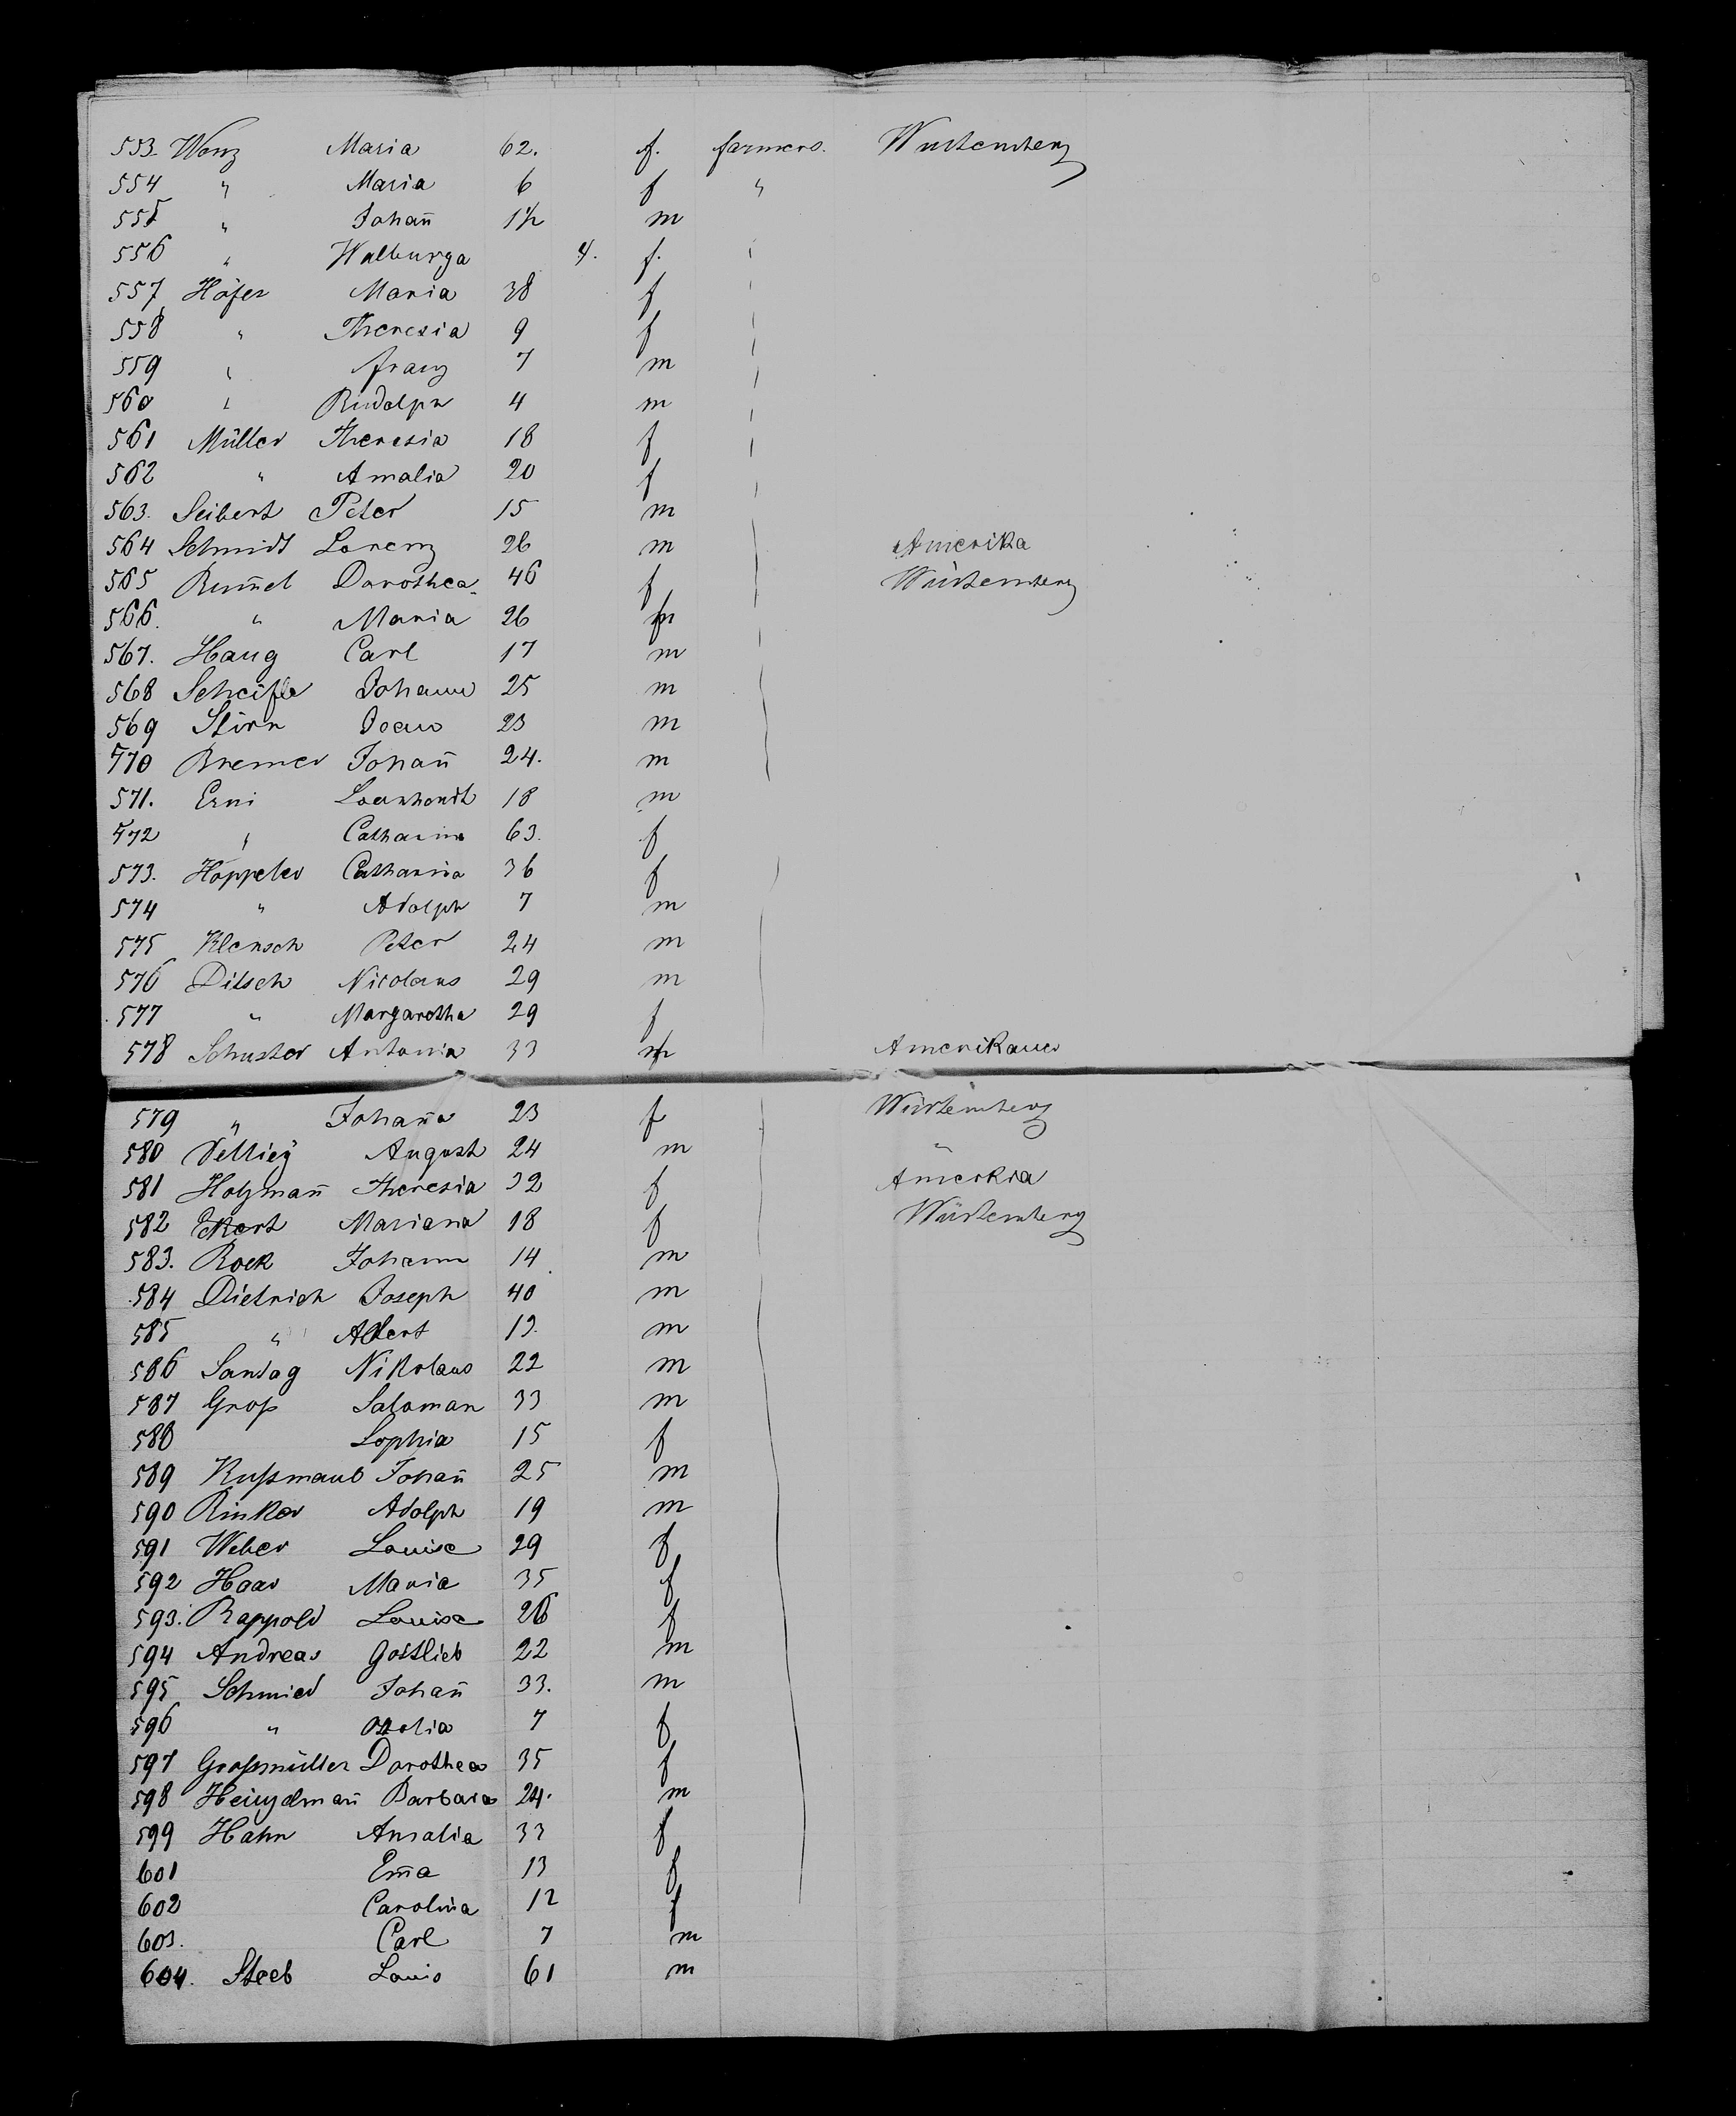 553. Wenz Maria 62. f. farmers. Wurtemberg
554 " Maria 6 f "
555 " Johan̄ 1½ m
556 " Walburga 4. f.
557 Höfer Maria 38 f
558 " Theresia 9 f
559 " Franz 7 m
560 " Rudolph 4 m
561 Müller Theresia 18 f
562 " Amalia 20 f
563. Seibert Peter 15 m
564 Schmidt Lorenz 26 m Amerika
565 Rum̄el Dorothea 46 f Würtemberg
566. " Maria 26 f
567. Haug Carl 17 m
568 Scheifle Johann 25 m
569 Stirn Jean 23 m
570 Bremer Johan̄ 24. m
571. Erni 18 m
572 " Catharina 63. f
573. Hoppeler Catharina 36 f
574 " Adolph 7 m
575 Klensch Peter 24 m
576 Ditsch Nicolaus 29 m
577 " Margaretha 29 f
578 Schuster Antonia 33 Amerikaner
579 " Johan̄a 23 f Würtemberg
580 August 24 m "
581 Holzman̄ Theresia 32 f Amerkia
582 Ekert Mariana 18 f Würtemberg
583. Roek Johann 14 m
584 Dietrich Joseph 40 m
585 " Albert 19. m
586 Sontag Nikolaus 22 m
587 Groß Saloman 33 m
588 Sophia 15 f
589 Kußmaul Johan̄ 25 m
590 Rinker Adolph 19 m
591 Weber Louise 29 f
592 Haar Maria 35 f
593. Rappold Louise 26 f
594 Andreas Gottlieb 22 m
595 Schmied Johan̄ 33. m
596 " 7 f
597 Großmüller Dorothea 35 f
598 Barbara 24. m
599 Hahn Amalia 33 f
601 Em̄a 13 f
602 Carolina 12 f
603. Carl 7 m
604. Steeb Louis 61 m